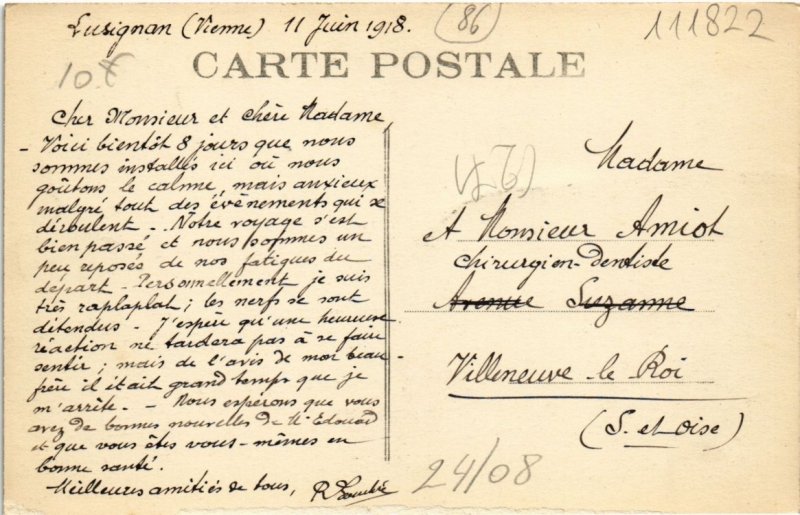 Lusignan (Vienne) 11 Juin 1918.
(86)
111822
10f
CARTE POSTALE
Cher Monsieur et chère Madame
- Voici bientôt 8 jours que nous
sommes installés ici où nous
goûtons le calme, mais anxieux
malgré tout des évènements qui se
déroulent -. Notre voyage s'est
bien passé et nous sommes un
peu reposés de nos fatigues du
départ - Personnellement je suis
très raplaplat ; les nerfs se sont
détendus - J'espère qu'une heureuse
réaction ne tardera pas à se faire
sentir ; mais de l'avis de mon beau-
frère il était grand temps que je
m'arrête. - Nous espérons que vous
avez de bonnes nouvelles de Mr Edouard
et que vous êtes vous-mêmes en
bonne santé.
Meilleures amitiés de tous,
Madame
et Monsieur Amiot
chirurgien-dentiste
Avenue Suzanne
Villeneuve le Roi
(S. et Oise)
24/08